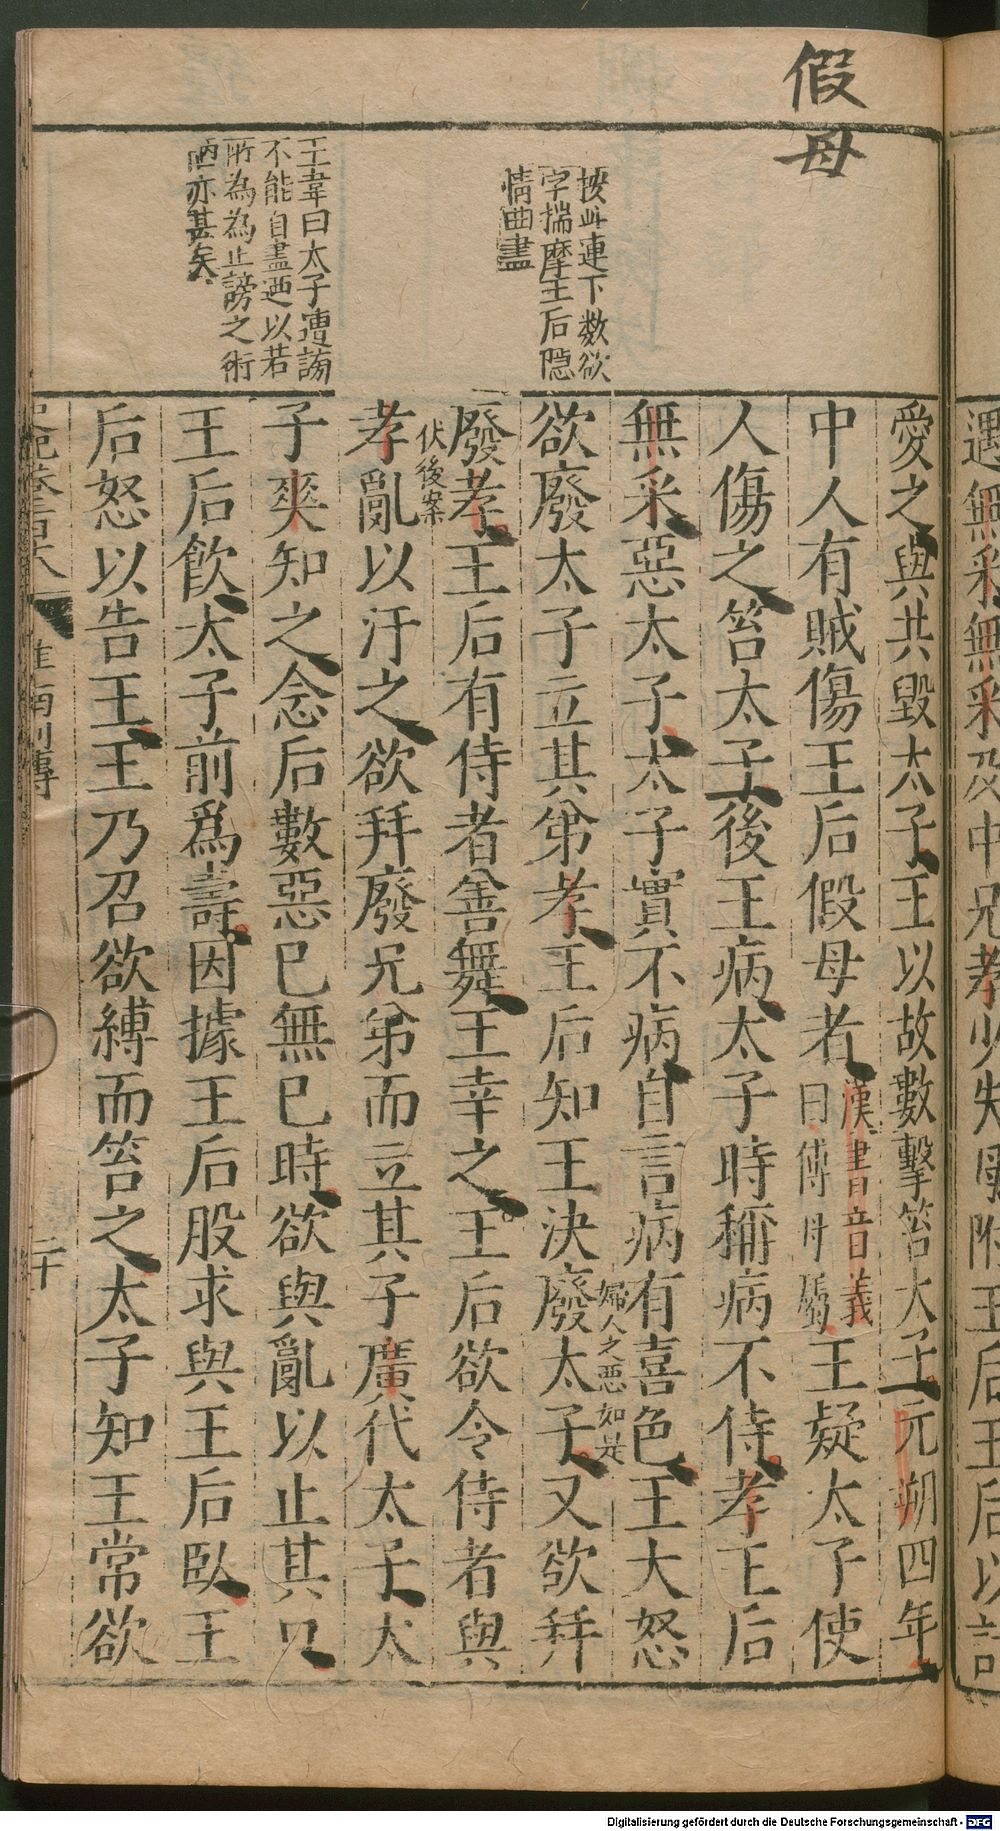 假母
按此連下数欲
字揣摩王后隠
情曲盡
王韋曰太子遭謗
不能自盡迺以若
所為為止謗之術
陋亦甚矣
遇無釆無釆及中兄孝少失母附王后王后以計
愛之與共毀太子王以故數擊笞太子元朔四年
中人有賊傷王后假母者
漢書音義
曰傅母屬
王疑太子使
人傷之笞太子後王病太子時稱病不侍孝王后
無釆惡太子太子實不病自言病有喜色王大怒
婦人之惡如是
欲廢太子立其弟孝王后知王決廢太子又欲幷
廢孝王后有侍者善舞王幸之王后欲令侍者與
伏後案
孝亂以汙之欲幷廢兄弟而立其子廣代太子太
子爽知之念后數惡已無已時欲與亂以止其口
王后飲太子前爲壽因據王后股求與王后臥王
后怒以告王王乃召欲縛而笞之太子知王常欲
淮南列傳
二十
Digitalisierung gefördert durch die Deutsche Forschungsgemeinschaft - DFG